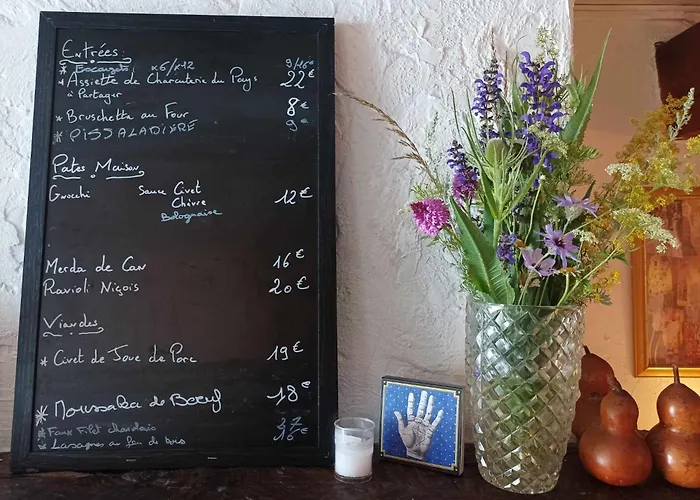 Entrées
* Escargots x6/x12 9/16€
* Assiette de Charcuterie du Pays 22€
à Partager
* Bruschetta au Four 8€
* PISSALADIÈRE 9€
Pates Maison
Gnocchi Sauce Civet 12€
Chèvre
Bolognaise
Merda de Can 16€
Ravioli Niçois 20€
Viandes
* Civet de Joue de Porc 19€
* Moussaka de Boeuf 18€
* Faux Filet charolais
* Lasagnes au feu de bois